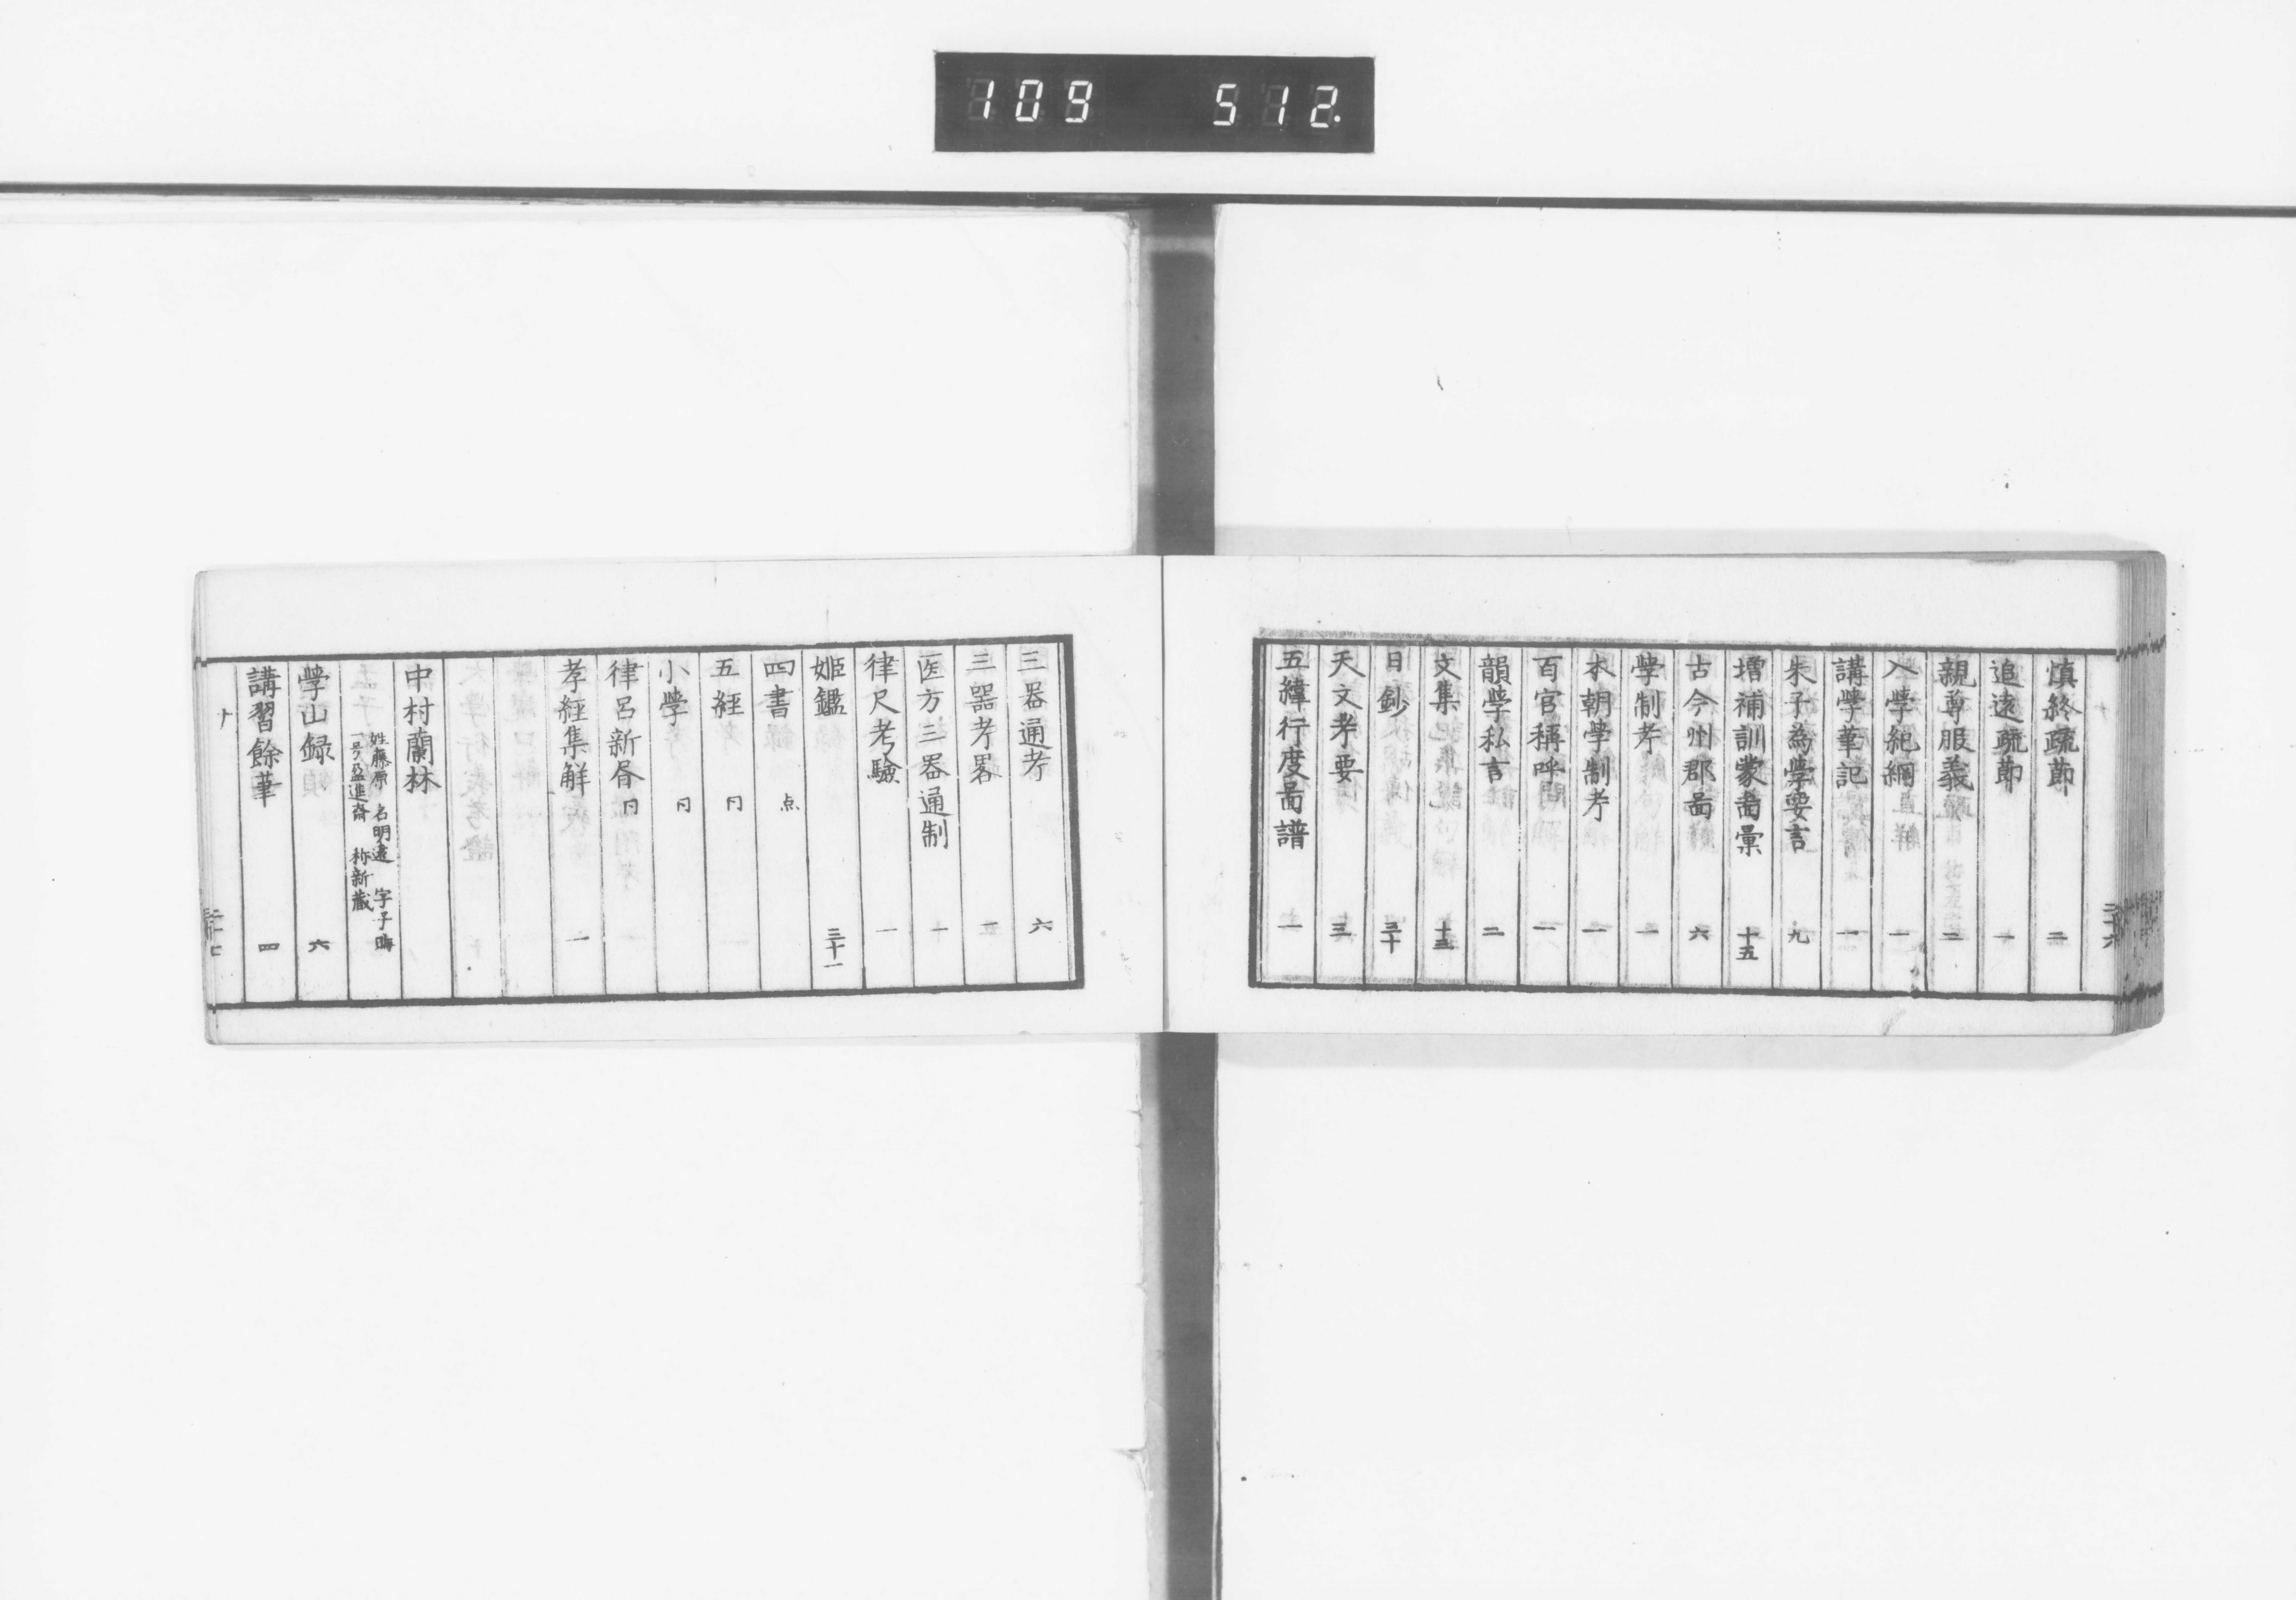 109 512.
慎終疏莭 二
追遠疏莭 一
親尊服義 二
入學紀綱 一
講學筆記 一
朱子為學要言 九
増補訓蒙啚彙 十五
古今州郡啚 六
學制考 一
本朝學制考 一
百官稱呼 一
韻學私言 二
文集 十三
日鈔 三十
天文考要 三
五緯行度啚譜 一
二十六
三器通考 六
三器考畧 二
医方三器通制 一
律尺考驗 一
姫鑑 三十一
四書 点
五経 同
小學 同
律呂新昏 同
孝經集解 一
中村蘭林
姓藤原 名明遠 字子晦
一号盈進斎 称新蔵
學山録 六
講習餘筆 四
ナ 二十七